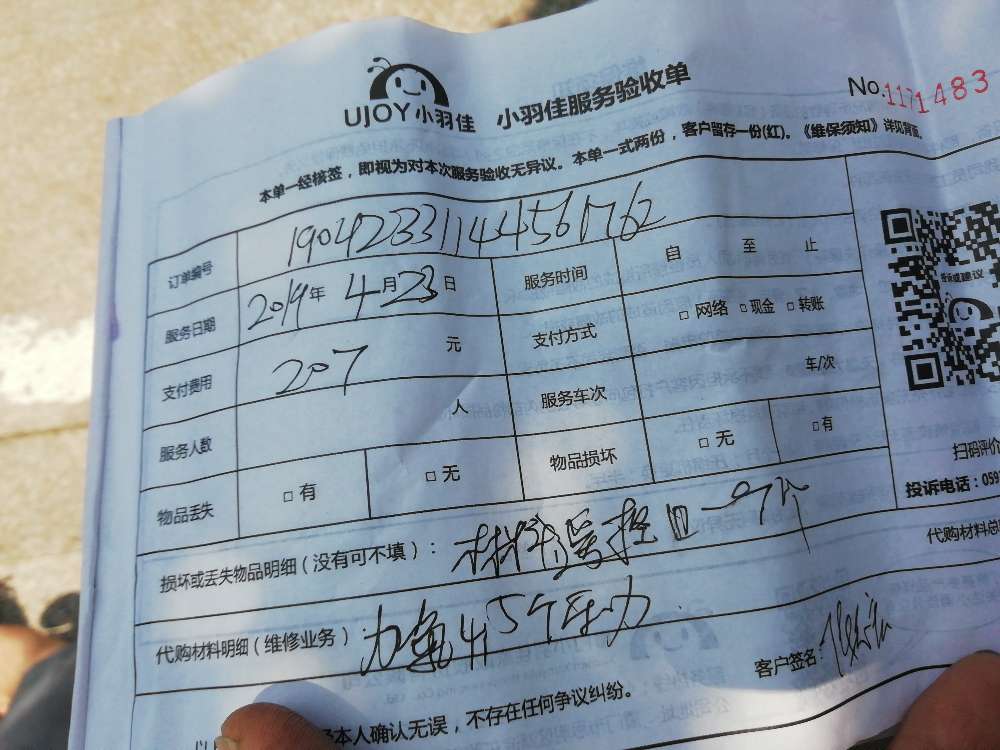 UJOY小羽佳 小羽佳服务验收单 No.1171483
本单一经核签，即视为对本次服务验收无异议。本单一式两份，客户留存一份(红)。《维保须知》详见背面。
订单编号 19042331144561762
服务日期 2019年4月23日 服务时间 自 至 止
支付费用 207元 支付方式 □网络 □现金 □转账
服务人数 人 服务车次 车/次
物品丢失 □有 □无 物品损坏 □无 □有
扫码评价
投诉电话：059
损坏或丢失物品明细（没有可不填）： 材料遥控
代购材料总
代购材料明细（维修业务）： 加氟 45个压力
客户签名：
本人确认无误，不存在任何争议纠纷。